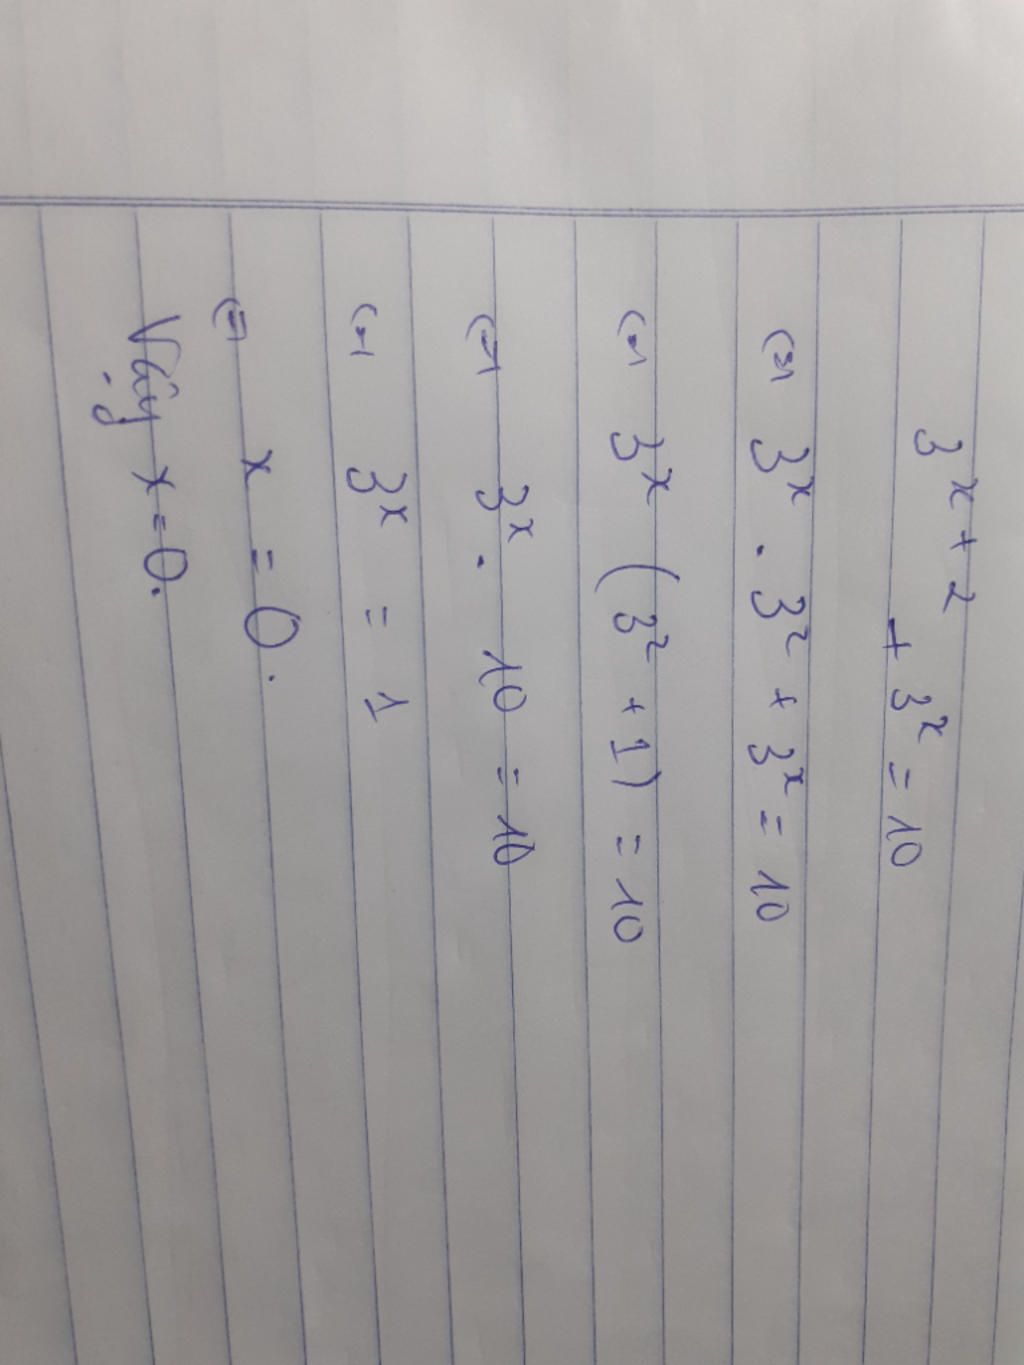 3^{x+2} + 3^x = 10
(=) 3^x . 3^2 + 3^x = 10
(=) 3^x (3^2 + 1) = 10
(=) 3^x . 10 = 10
(=) 3^x = 1
(=) x = 0.
Vậy x = 0.